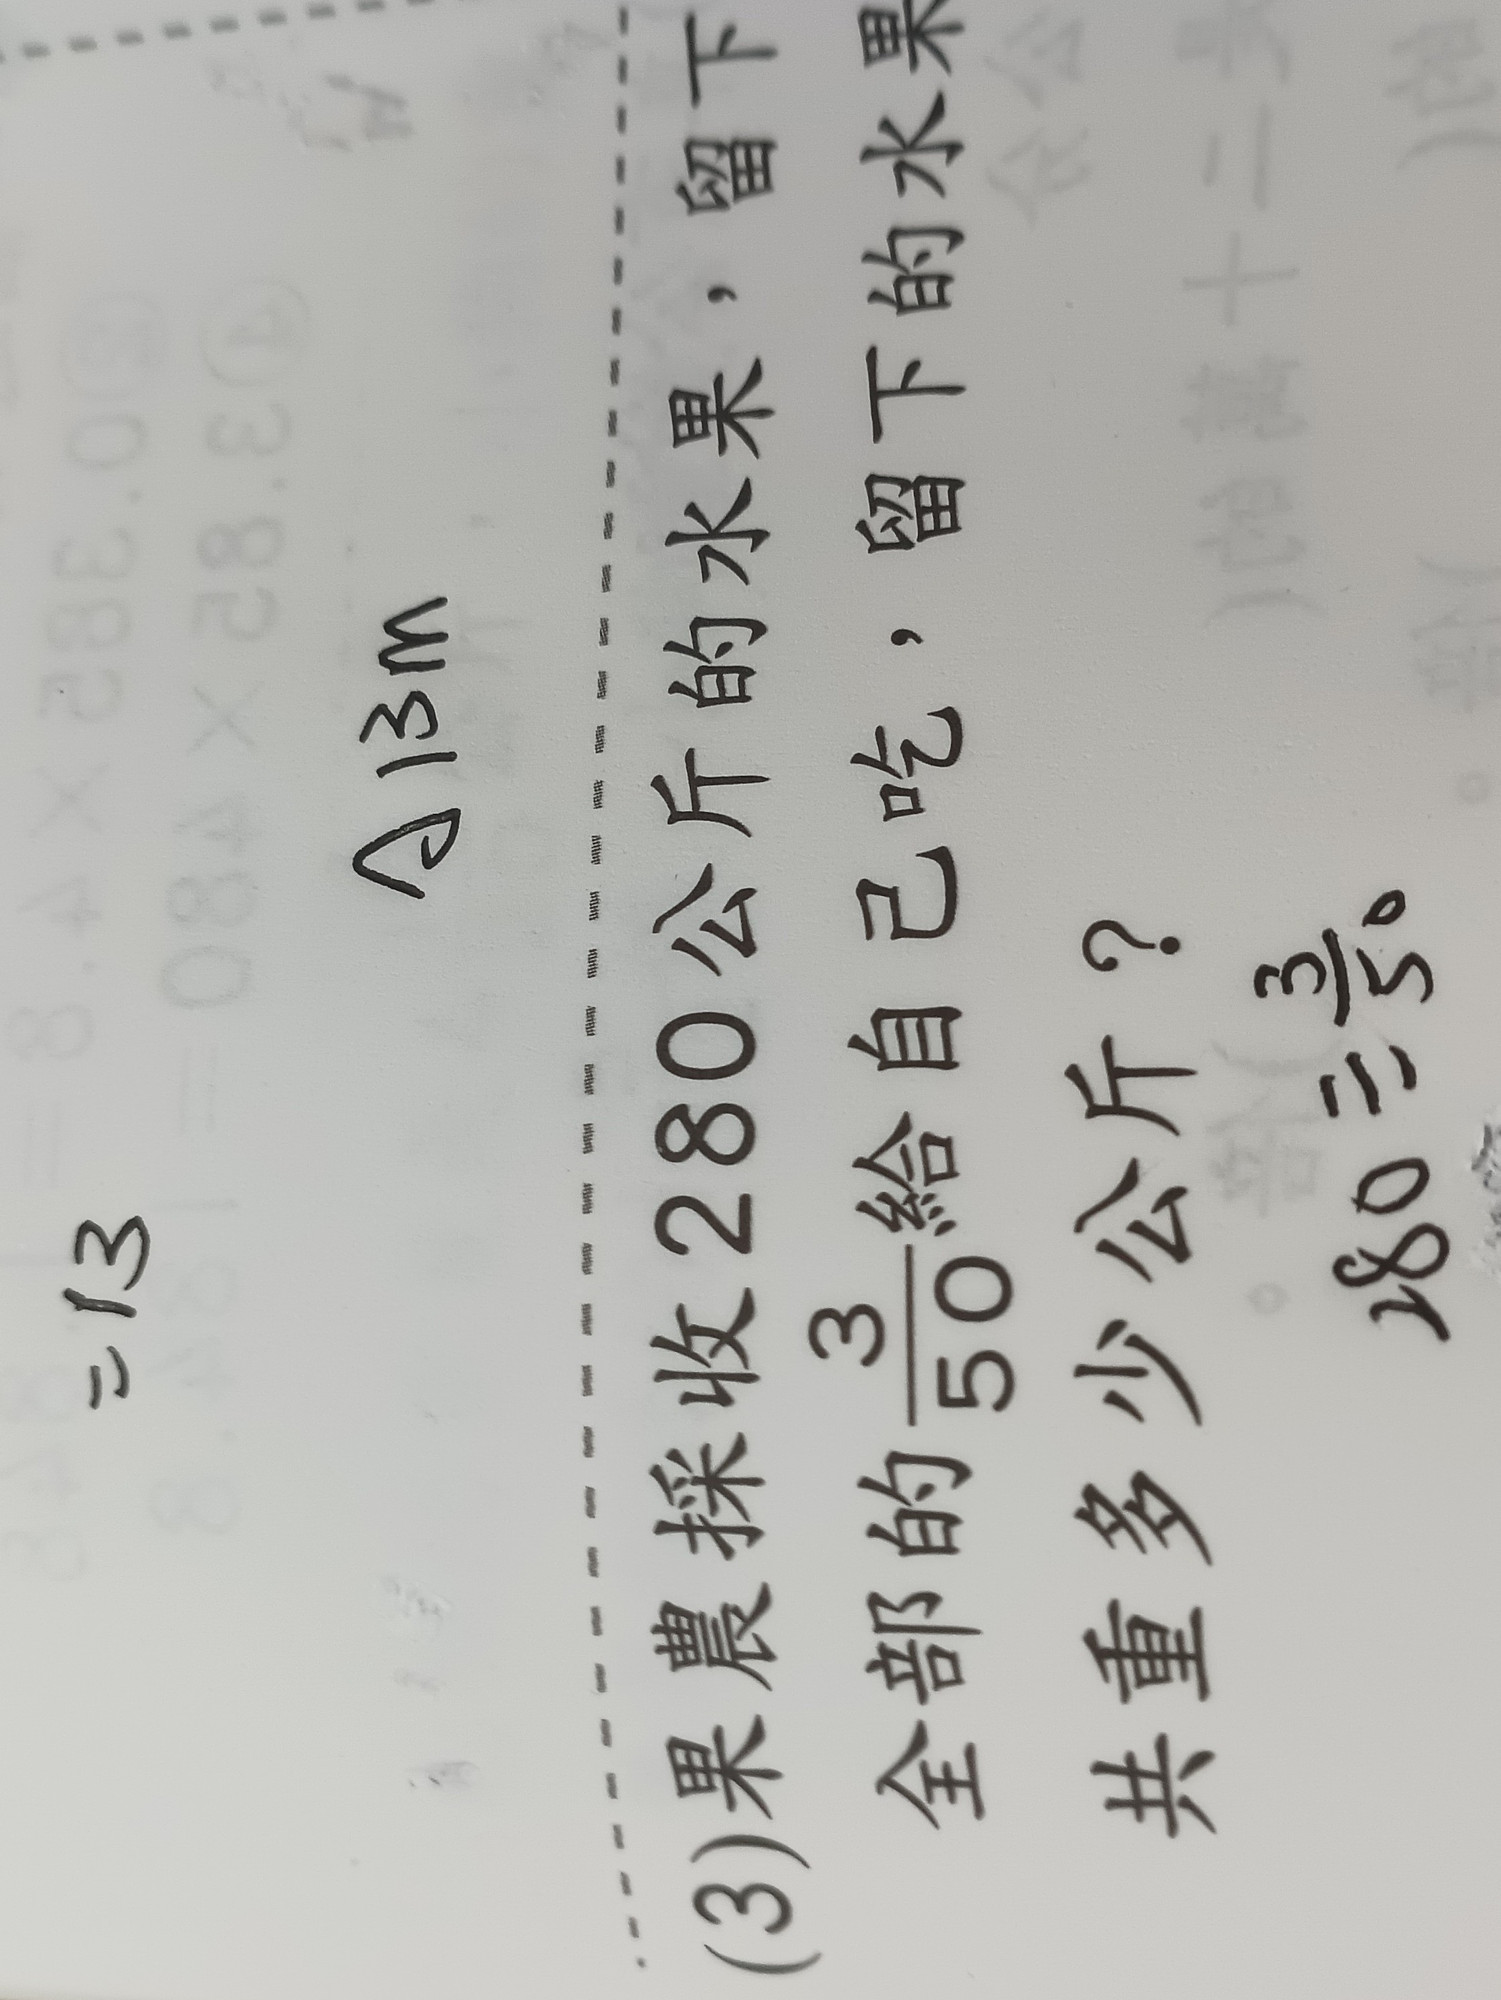 =13
A 13m
(3)果農採收280公斤的水果，留下
全部的3/50給自己吃，留下的水果
共重多少公斤？
280 = 3/50